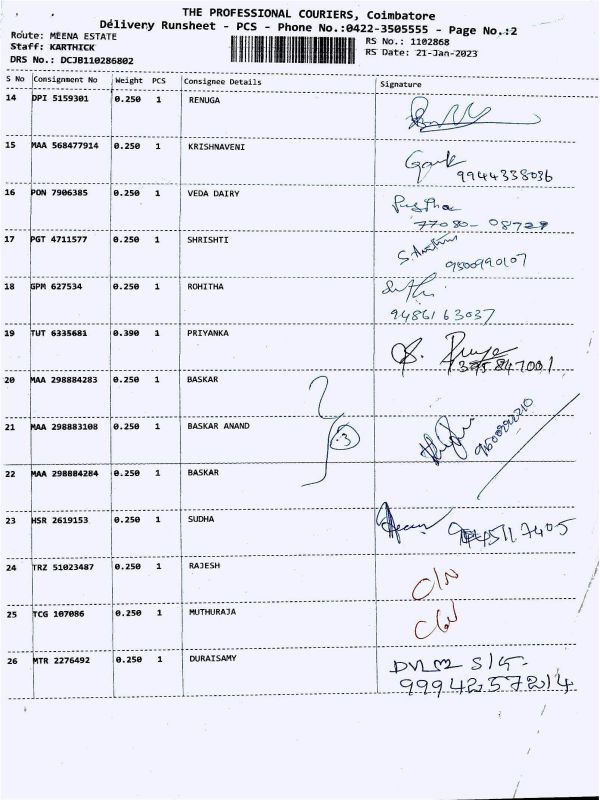 THE PROFESSIONAL COURIERS, Coimbatore
Delivery Runsheet - PCS - Phone No.:0422-3505555 - Page No.:2
Route: MEENA ESTATE
Staff: KARTHICK
DRS No.: DCJB110286802
RS No.: 1102868
RS Date: 21-Jan-2023
S No Consignment No Weight PCS Consignee Details Signature
14 DPI 5159301 0.250 1 RENUGA
15 MAA 568477914 0.250 1 KRISHNAVENI
9944338036
16 PON 7906385 0.250 1 VEDA DAIRY
77080-08729
17 PGT 4711577 0.250 1 SHRISHTI
9500990107
18 GPM 627534 0.250 1 ROHITHA
9486163037
19 TUT 6335681 0.390 1 PRIYANKA
20 MAA 298884283 0.250 1 BASKAR
21 MAA 298883108 0.250 1 BASKAR ANAND
3
22 MAA 298884284 0.250 1 BASKAR
23 HSR 2619153 0.250 1 SUDHA
24 TRZ 51023487 0.250 1 RAJESH
25 TCG 107086 0.250 1 MUTHURAJA
26 MTR 2276492 0.250 1 DURAISAMY
9994257214